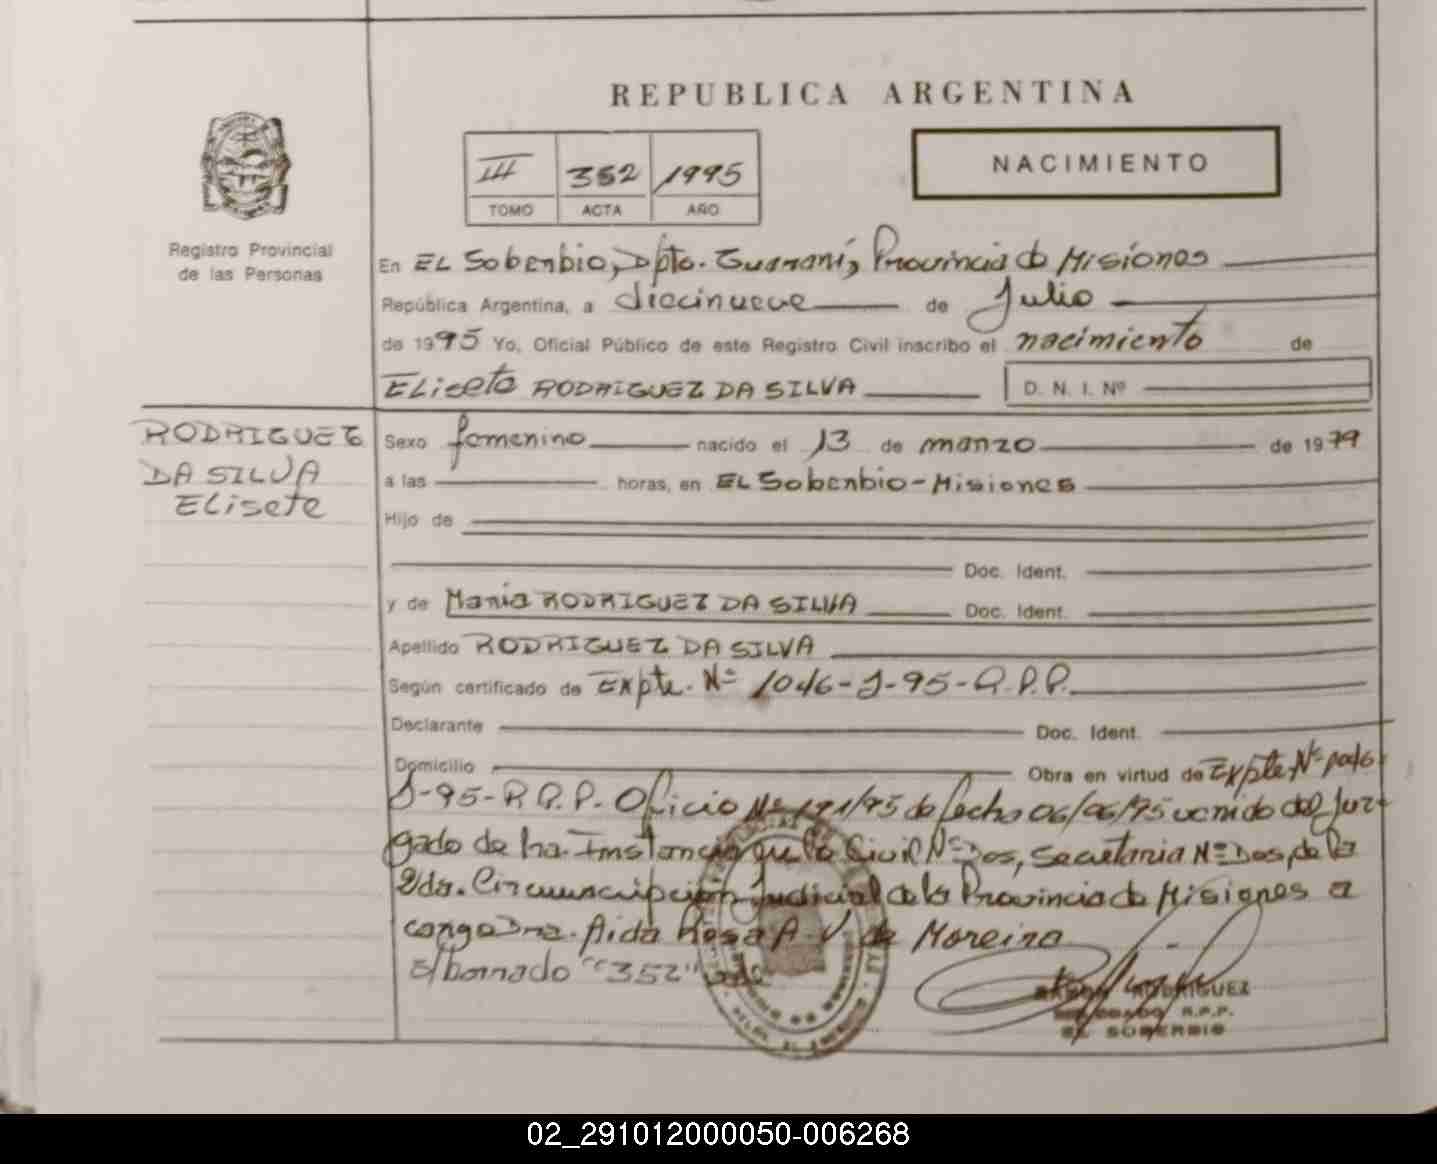 REPUBLICA ARGENTINA
III 352 1995
TOMO ACTA AÑO
NACIMIENTO
Registro Provincial
de las Personas
En EL Soberbio, Dpto. Guaraní, Provincia de Misiones
República Argentina, a diecinueve de Julio
de 1995 Yo, Oficial Público de este Registro Civil inscribo el nacimiento de
Elisete RODRIGUEZ DA SILVA D. N. I. Nº
RODRIGUEZ
DA SILVA
Elisete
Sexo femenino nacido el 13 de marzo de 1979
a las horas, en EL Soberbio-Misiones
Hijo de
Doc. Ident.
y de Maria RODRIGUEZ DA SILVA Doc. Ident.
Apellido RODRIGUEZ DA SILVA
Según certificado de Expte. Nº 1046-J-95-R.P.P.
Declarante Doc. Ident.
Domicilio Obra en virtud de Expte Nº 1046
J-95-R.P.P. Oficio Nº de fecha 06/06/95 venido del Juz-
gado de Instancia en lo Civil Nº Dos, Secretaria Nº Dos, de la
2da. Circunscripción Judicial de la Provincia de Misiones a
cargo Dra. Aida Rosa A. V. de Moreira
E/borrado "352"
RAMON RODRIGUEZ
R.P.P.
EL SOBERBIO
02_291012000050-006268